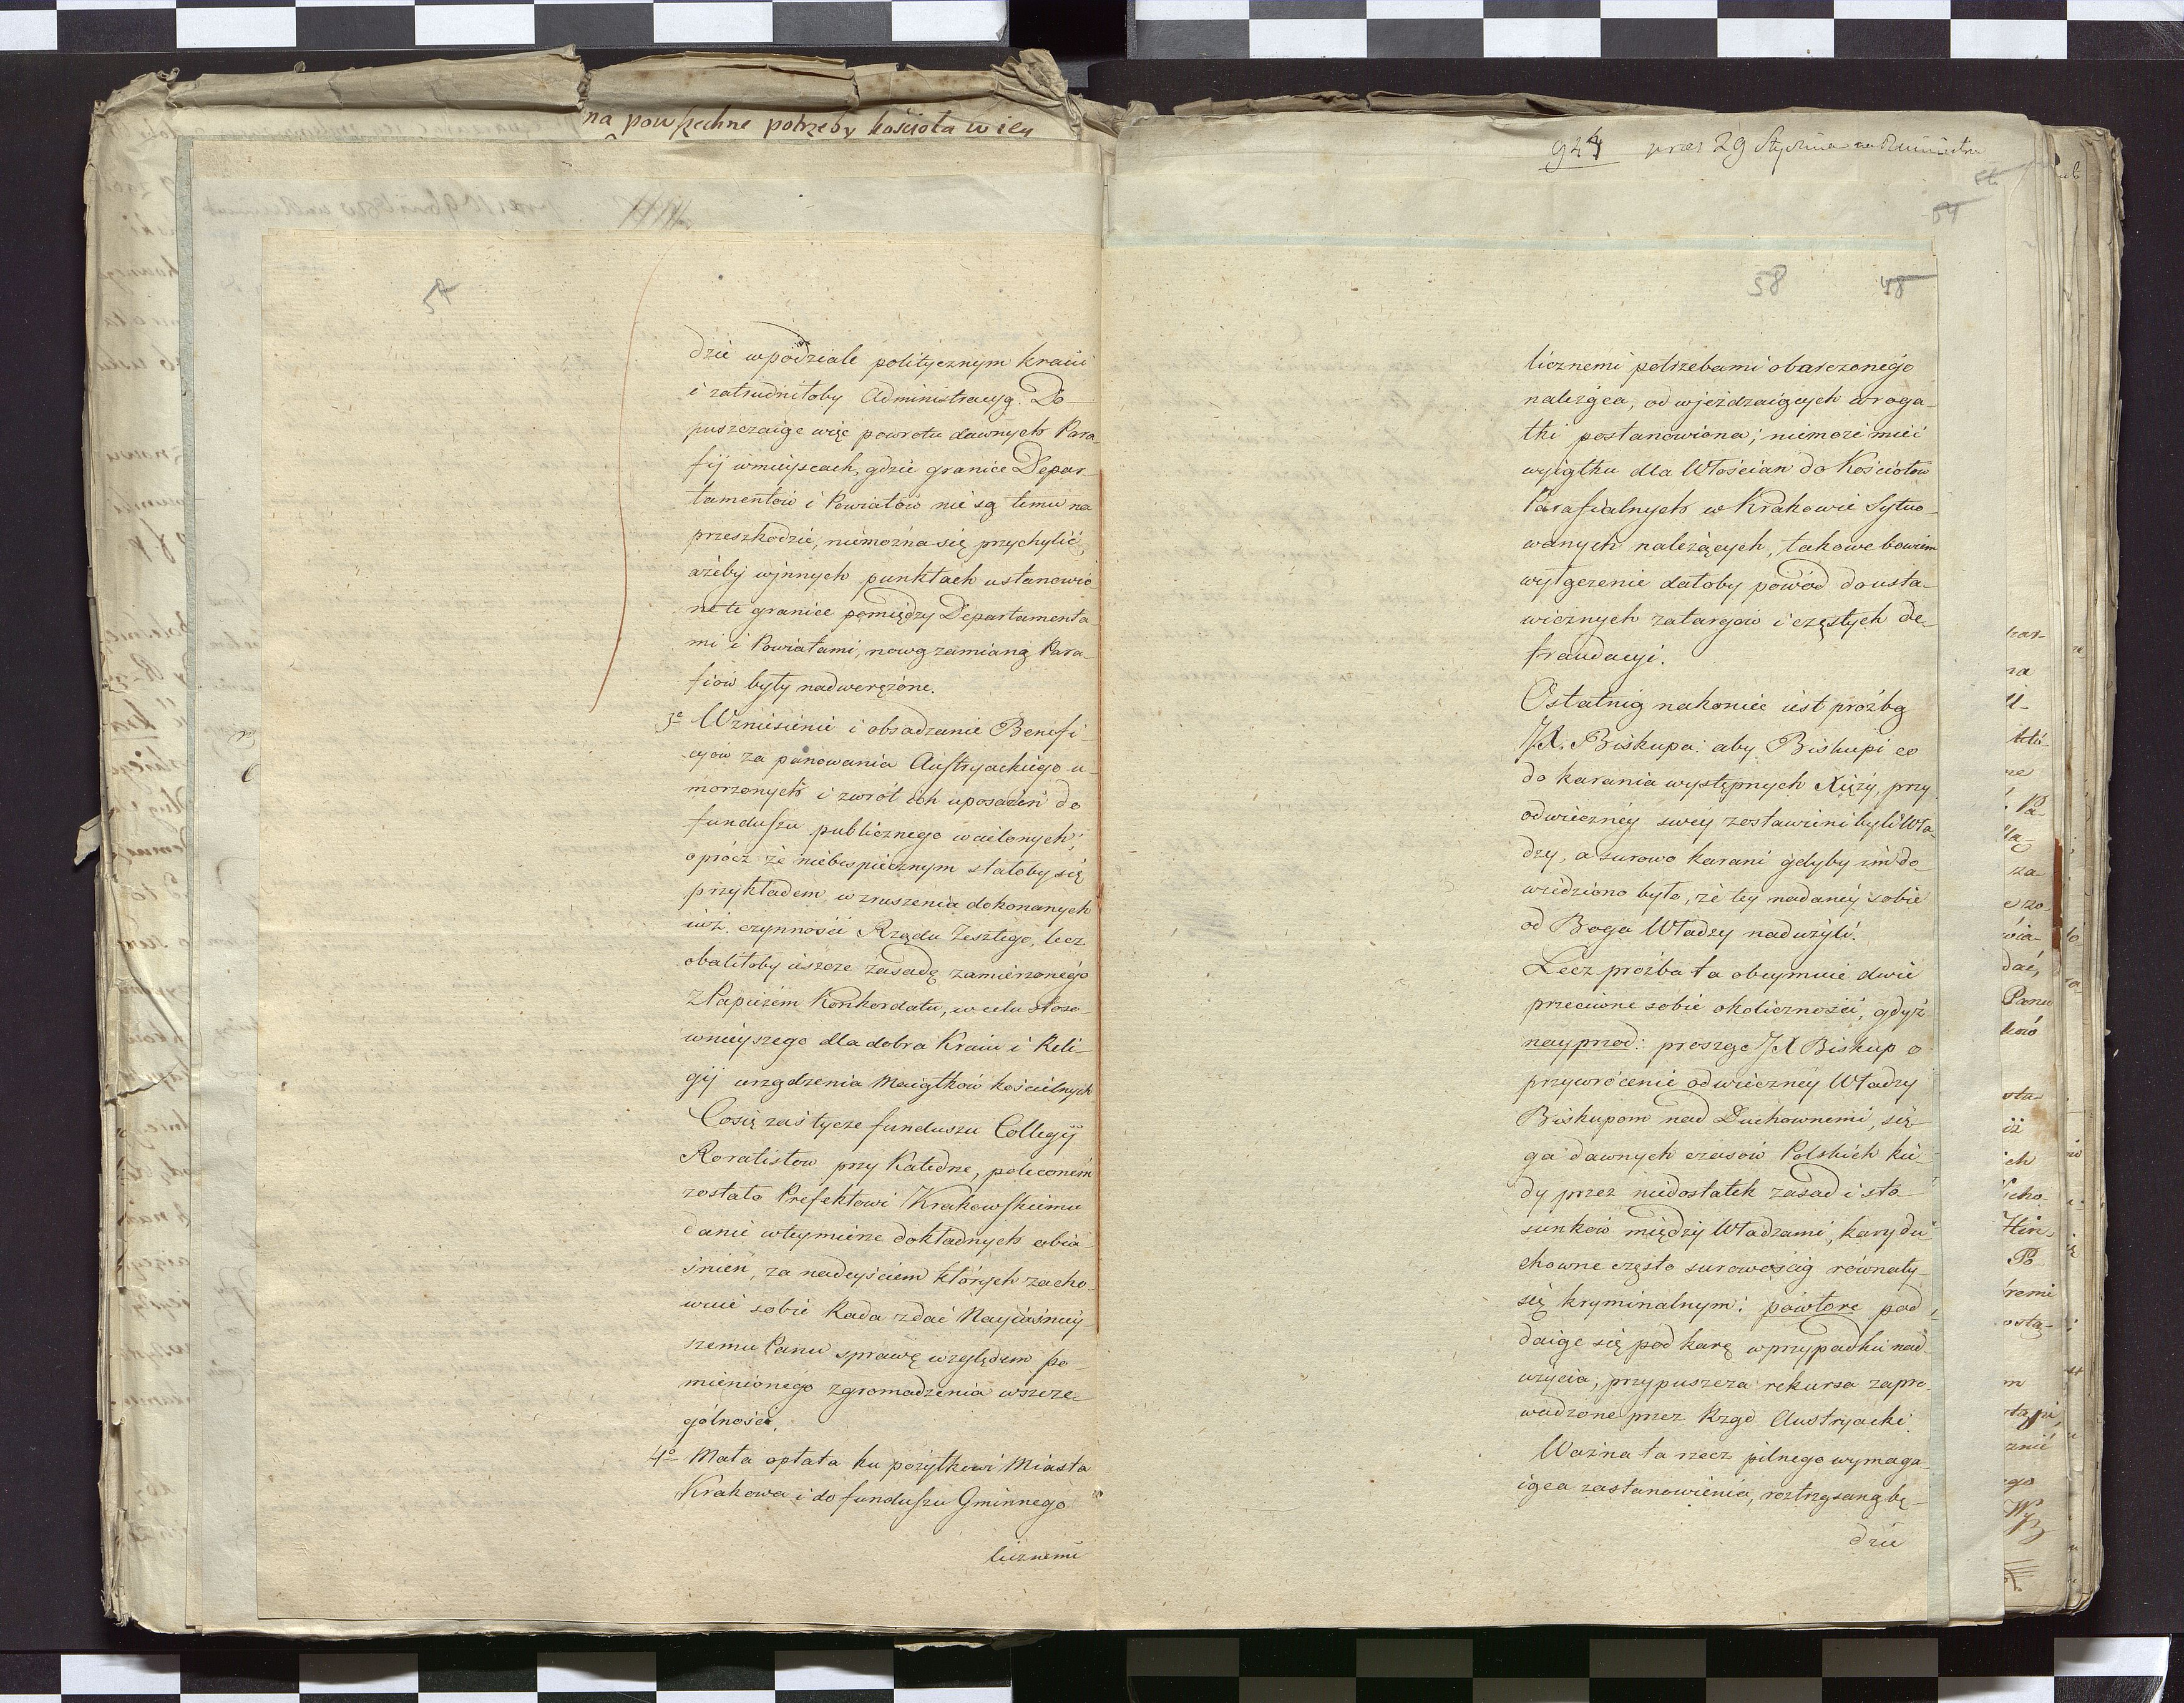 na powszechne potrzeby kościoła w iey
57
dzie w podziale politycznym kraiu
i zatrudniłoby Administracyą. Do-
puszczaiąc więc powrotu dawnych Para-
fij w mieyscach, gdzie granice Depar-
tamentów i Powiatów nie są temu na
przeszkodzie, niemożna się przychylić,
ażeby w jnnych punktach ustanowio-
ne te granice pomiędzy Departamenta-
mi i Powiatami, nową zamianą Para-
fiów były nadwerężone.
3e Wzniesienie i obsadzenie Benefi-
cyów za panowania Austryackiego u-
morzonych i zwrót ich uposażeń do
funduszu publicznego wcielonych;
oprócz że niebespiecznym stałoby się
przykładem wzruszenia dokonanych
iuż czynności Rządu Zeszłego, lecz
obaliłoby ieszcze zasadę zamierzonego
z Papieżem Konkordatu, w celu stoso-
wnieyszego dla dobra Kraiu i Reli-
gij urządzenia Maiątków kościelnych
Co się zaś tycze funduszu Collegij
Roralistow przy Katedrze, poleconem
zostało Prefektowi Krakowskiemu
danie w tey mierze dokładnych obia-
śnień, za nadeyściem których zacho-
wuie sobie Rada zdać Nayiaśniey-
szemu Panu sprawę względem po-
mienionego zgromadzenia w szcze-
gólności.
4o Mała opłata ku pożytkowi Miasta
Krakowa i do funduszu Gminnego
licznemi
944 przez 29 Stycznia
54
58 48
licznemi potrzebami obarczonego
należąca, od wjeżdzaiących w roga-
tki postanowiona; niemoże mieć
wyiątku dla Włościan do Kościołow
Parafialnych w Krakowie Sytuo-
wanych należących, takowe bowiem
wyłączenie dałoby powód do usta-
wicznych zatargów i częstych de-
fraudacyi.
Ostatnią nakoniec iest prożbą
JX. Biskupa: aby Biskupi co
do karania występnych Xięży, przy
odwieczney swey zostawieni byli Wła-
dzy, a surowo karani gdyby im do-
wiedziono było, że tey nadaney sobie
od Boga Władzy nadużyli.
Lecz prożba ta obeymuie dwie
przeciwne sobie okoliczności, gdyż
nayprzod: prosząc JX Biskup o
przywrócenie odwieczney Władzy
Biskupom nad Duchownemi, się-
ga dawnych czasów Polskich kie-
dy przez niedostatek zasad i sto-
sunków między Władzami, kary du-
chowne często surowością równały
się kryminalnym: powtore pod-
daiąc się pod karę w przypadku nad-
użycia, przypuszcza rekursa zapro-
wadzone przez Rząd Austryacki.
Ważna ta rzecz pilnego wymaga-
iąca zastanowienia, roztrząsaną bę-
dzie